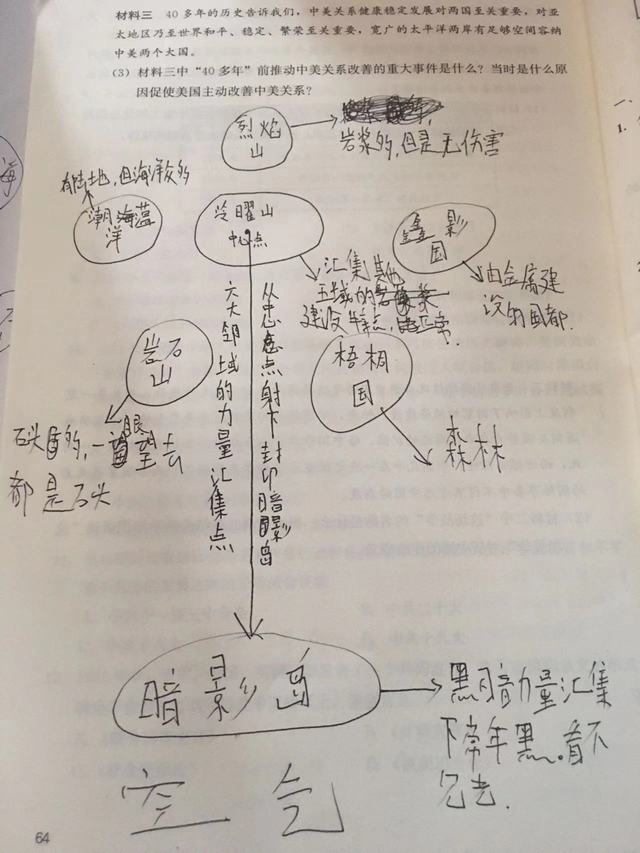 材料三 40多年的历史告诉我们，中美关系健康稳定发展对两国至关重要，对亚
太地区乃至世界和平、稳定、繁荣至关重要，宽广的太平洋两岸有足够空间容纳
中美两个大国。
(3) 材料三中“40多年”前推动中美关系改善的重大事件是什么？当时是什么原
因促使美国主动改善中美关系？
烈焰
山
岩浆多的，但是无伤害
有陆地，但海洋众多
潮海蓝
洋
曜山
中心点
鑫影
国
汇集其他
五域的
建设特点，
由金属建
设的国都.
岩石
山
梧桐
国
石头多的，一眼望去
都是石头
森林
六大邻域的力量汇集点
从忠点射下封印暗影岛
暗影岛
黑暗力量汇集
下常年黑.看不
见去.
空气
64